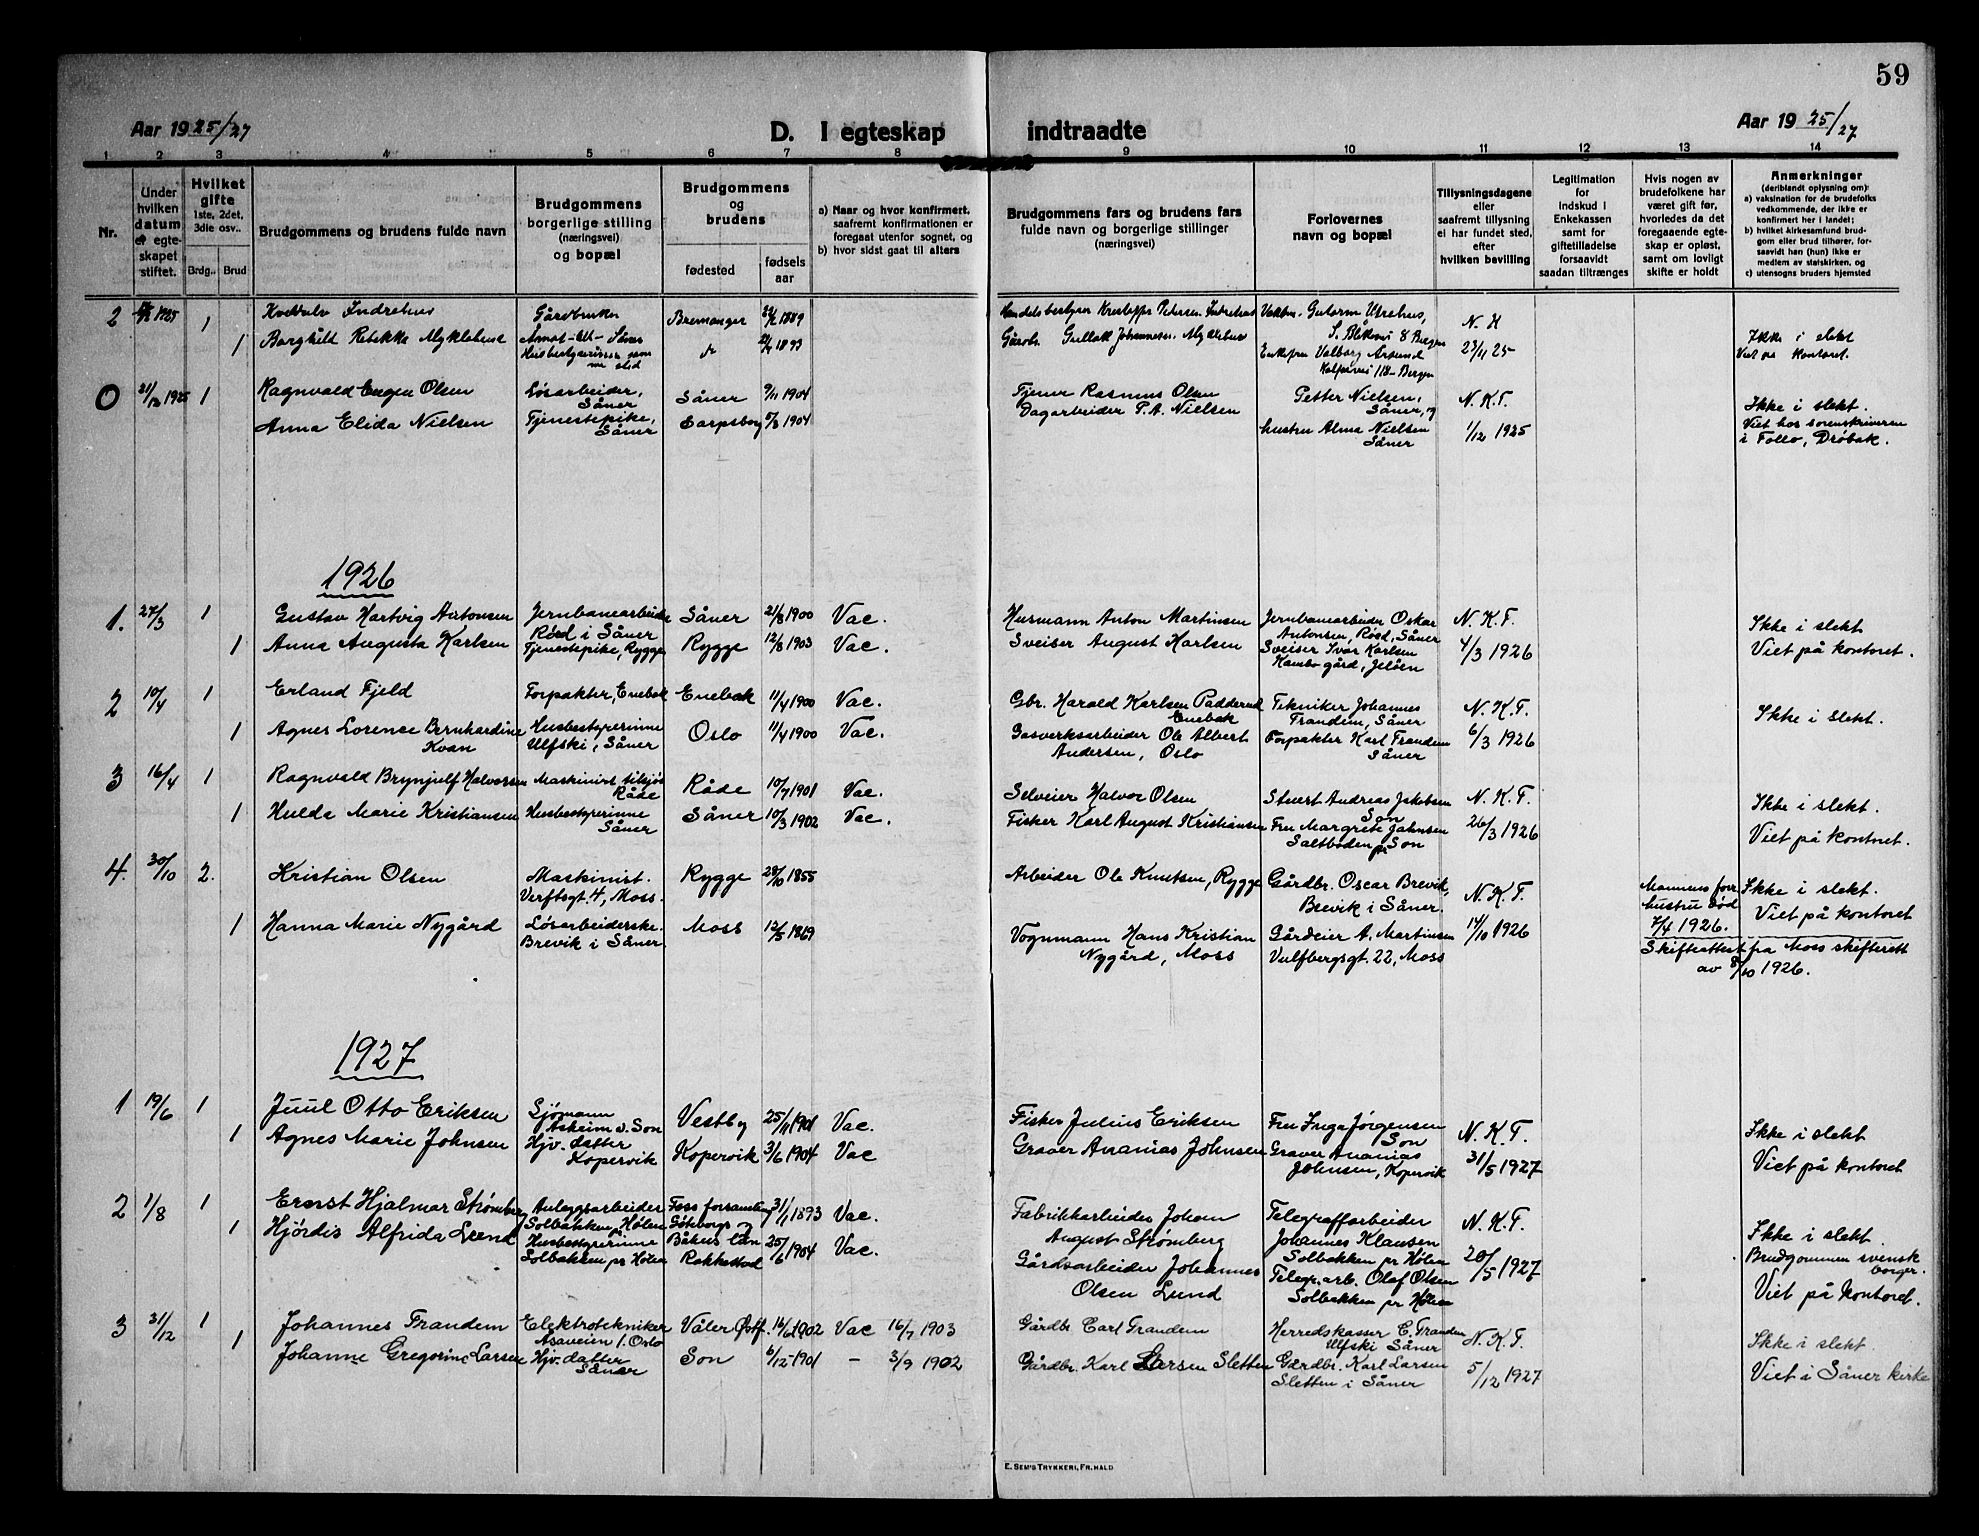 59
Aar 1925/27
D. I egteskap indtraadte
Aar 1925/27
1 2 3 4 5 6 7 8 9 10 11 12 13 14
Nr.
Under hvilken datum er egteskapet stiftet.
Hvilket gifte
1ste, 2det, 3die osv..
Brdg.. Brud
Brudgommens og brudens fulde navn
Brudgommens borgerlige stilling
(næringsvei)
og bopæl
Brudgommens og brudens
fødested
fødselsaar
a) Naar og hvor konfirmert, saafremt konfirmationen er foregaat utenfor sognet, og
b) hvor sidst gaat til alters
Brudgommens fars og brudens fars fulde navn og borgerlige stillinger
(næringsvei)
Forlovernes navn og bopæl
Tillysningsdagene
eller
saafremt tillysning ei har fundet sted, efter hvilken bevilling
Legitimation for indskud i Enkekassen samt for giftetilladelse forsaavidt saadan tiltrænges
Hvis nogen av brudefolkene har været gift før, hvorledes da det foregaaende egteskap er opløst, samt om lovligt skifte er holdt
Anmerkninger
(deriblandt oplysning om):
a) vaksination for de brudefolks vedkommende, der ikke er konfirmert her i landet;
b) hvilket kirkesamfund brudgom eller brud tilhører, forsaavidt han (hun) ikke er medlem av statskirken, og
c) utensogns bruders hjemsted
2 1925 1 Indrehus Gårdbruker Bremanger 1889
1 Borghild Rebekka Myklebust 1893
Gullak Johannesen Myklebust
Bergen
N. K
23/11 25
Ikke i slekt
Viet på kontoret.
0 21/12 1925 1 Ragnvald Eugen Olsen Løsarbeider, Såner Såner 9/11 1904
Anna Elida Nielsen Tjenestepike, Såner Sarpsborg 5/8 1904
Tjener Rasmus Olsen
Dagarbeider P. A. Nielsen
Petter Nielsen, Såner, og
hustru Alma Nielsen Såner
N. K. F.
1/12 1925
Ikke i slekt.
Viet hos sorenskriveren
i Follo, Drøbak.
1926
1. 27/3 1 Gustav Hartvig Antonsen Jernbanearbeider Røed i Såner Såner 21/8 1900 Vac.
1 Anna Augusta Karlsen Tjenestepike, Rygge Rygge 12/8 1903 Vac.
Husmann Anton Martinsen
Sveiser August Karlsen
Jernbanearbeider Oskar Antonsen, Røed, Såner
Sveiser Ivar Karlsen
Kambo gård, Jeløen
N. K. F.
4/3 1926
Ikke i slekt
Viet på kontoret.
2 10/4 1 Erland Fjeld Forpakter, Enebak Enebak 11/4 1900 Vac.
1 Agnes Lorence Bernhardine Kvan Husbestyrerinne Ulfski, Såner Oslo 11/4 1900 Vac.
Gbr. Harald Karlsen Padderud Enebak
Gasverksarbeider Ole Albert Andersen, Oslo
Tekniker Johannes Trandem, Såner
Forpakter Karl Trandem Såner
N. K. F.
6/3 1926
Ikke i slekt.
3 16/4 1 Ragnvald Brynjulf Halvorsen Maskinist tilsjøs Råde Råde 10/7 1901 Vac.
1 Hulda Marie Kristiansen Husbestyrerinne Såner Såner 10/3 1902 Vac.
Selveier Halvor Olsen
Fisker Karl August Kristiansen
Stuert Andreas Jakobsen Son
Fru Margrete Jahnsen
Saltboden pr Son
N. K. F.
26/3 1926
Ikke i slekt.
Viet på kontoret.
4. 30/10 2. Kristian Olsen Maskinist. Verftsgt. 4, Moss. Rygge 28/10 1855
1 Hanna Marie Nygård Løsarbeiderske. Brevik i Såner. Moss 12/5 1869
Arbeider Ole Knutsen, Rygge
Vognmann Hans Kristian Nygård, Moss
Gårdbr. Oscar Brevik, Brevik i Såner.
Gårdeier A. Martinsen
Vulfbergsgt. 22, Moss
N. K. F.
14/10 1926
Mannens forr hustru død
7/4 1926.
Skifteattest fra Moss skifterett
av 8/10 1926.
Ikke i slekt.
Viet på kontoret
1927
1 19/6 1 Juul Otto Eriksen Sjømann Askeim v. Son Vestby 25/11 1901 Vac.
1 Agnes Marie Johnsen Hjv. datter Kopervik Kopervik 3/6 1904 Vac
Fisker Julius Eriksen
Graver Ananias Johnsen
Fru Inga Jørgensen Son
Graver Ananias Johnsen, Kopervik
N. K. F.
31/5 1927
Ikke i slekt
Viet på kontoret
2 1/8 1 Ernst Hjalmar Strømberg Anleggsarbeider Solbakken pr Hølen Foss forsamling Göteborgs og Båhus län 31/1 1893 Vac.
1 Hjørdis Alfrida Lund Husbestyrerinne Solbakken pr Hølen Rakkestad 25/6 1904 Vac.
Fabrikkarbeider Johan August Strømberg
Gårdsarbeider Johannes Olsen Lund
Telegrafarbeider Johannes Klausen
Solbakken pr Hølen
Telegr.arb. Olaf Olsen
Solbakken pr Hølen
N. K. F.
20/5 1927
Ikke i slekt.
Brudgommen svensk borger.
Viet på kontoret.
3 31/12 1 Johannes Trandem Elektrotekniker Åsaveien 1. Oslo Våler Østf. 16/6 1902 Vac 16/7 1903
1 Johanne Gregorine Larsen Hjv. datter Såner Son 6/12 1901 - 3/9 1902
Gårdbr. Carl Trandem
Gårdbr. Karl Larsen Sletten
Herredskasser C. Trandem Ulfski Såner
Gårdbr. Karl Larsen
Sletten i Såner
N. K. F.
5/12 1927
Ikke i slekt.
Viet i Såner kirke
E. SEM'S TRYKKERI, FR. HALD